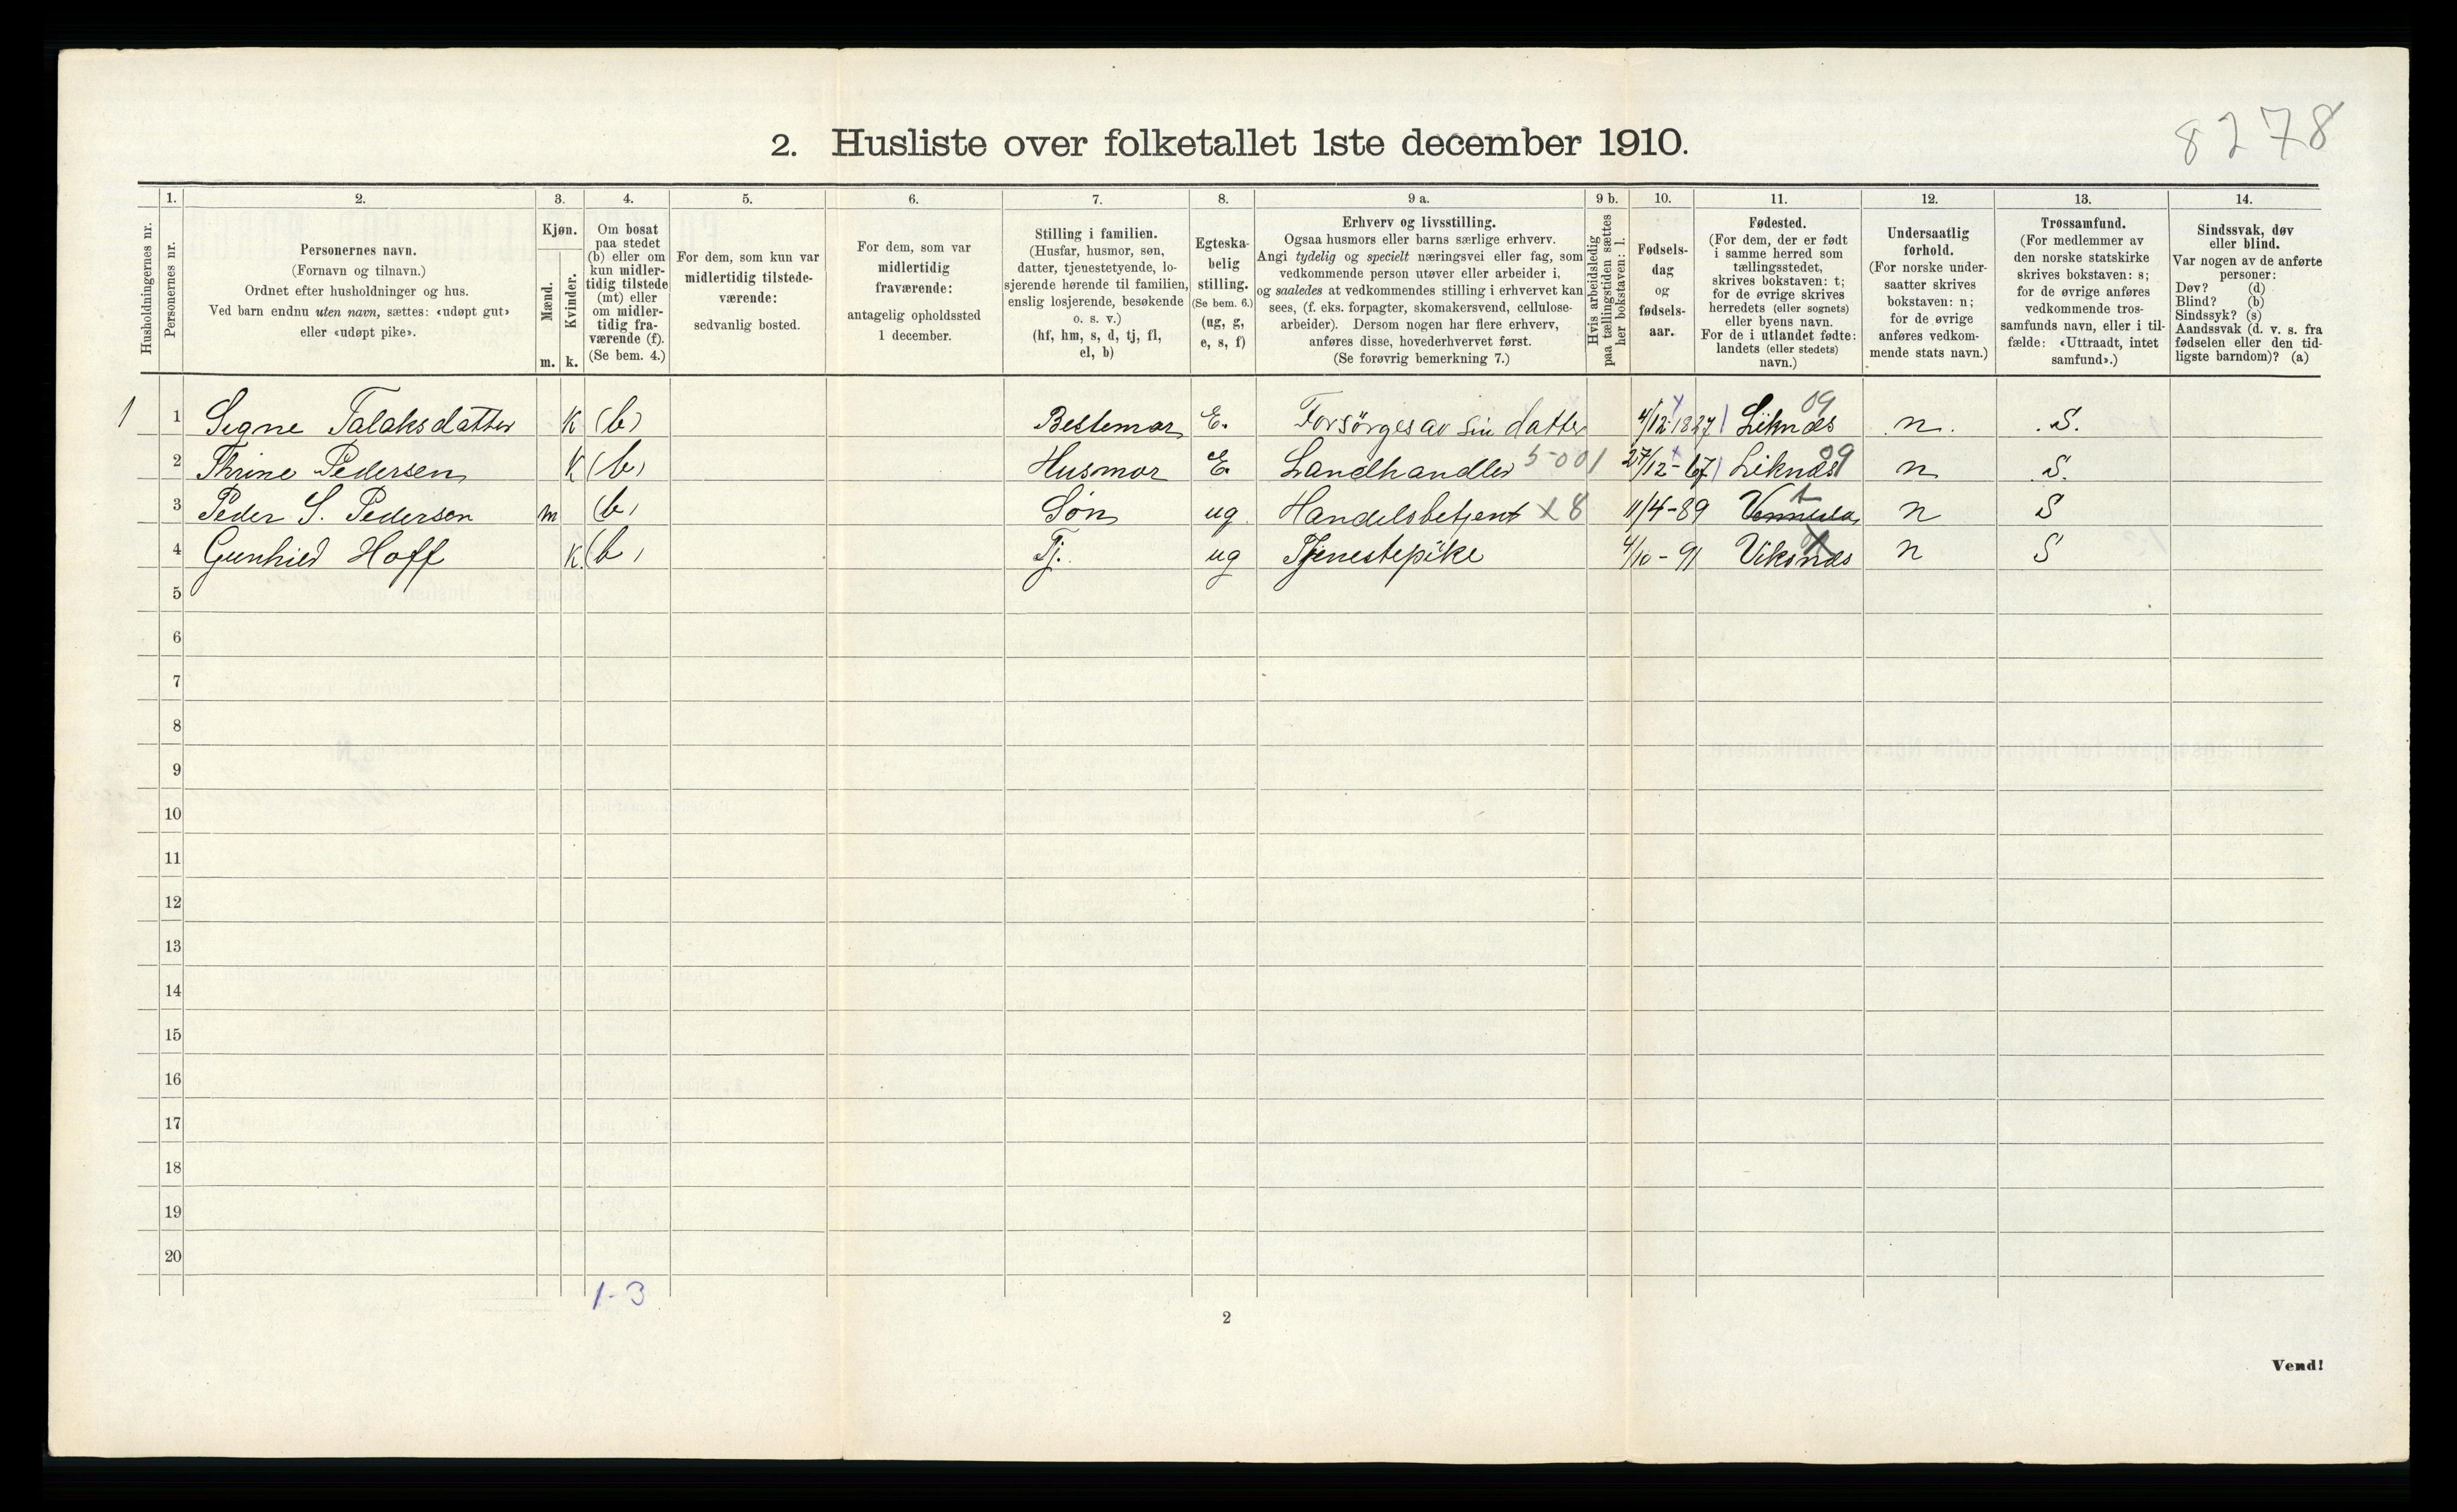 8278
2. Husliste over folketallet 1ste december 1910.
Husholdningernes nr.
1.
Personernes nr.
2.
Personernes navn.
(Fornavn og tilnavn.)
Ordnet efter husholdninger og hus.
Ved barn endnu uten navn, sættes: «udøpt gut»
eller «udøpt pike».
3.
Kjøn.
Mænd.
Kvinder.
m. k.
4.
Om bosat
paa stedet
(b) eller om
kun midler-
tidig tilstede
(mt) eller
om midler-
tidig fra-
værende (f).
(Se bem. 4.)
5.
For dem, som kun var
midlertidig tilstede-
værende:
sedvanlig bosted.
6.
For dem, som var
midlertidig
fraværende:
antagelig opholdssted
1 december.
7.
Stilling i familien.
(Husfar, husmor, søn,
datter, tjenestetyende, lo-
sjerende hørende til familien,
enslig losjerende, besøkende
o. s. v.)
(hf, hm, s, d, tj, fl,
el, b)
8.
Egteska-
belig
stilling.
(Se bem. 6.)
(ug, g,
e, s, f)
9 a.
Erhverv og livsstilling.
Ogsaa husmors eller barns særlige erhverv.
Angi tydelig og specielt næringsvei eller fag, som
vedkommende person utøver eller arbeider i,
og saaledes at vedkommendes stilling i erhvervet kan
sees, (f. eks. forpagter, skomakersvend, cellulose-
arbeider). Dersom nogen har flere erhverv,
anføres disse, hovederhvervet først.
(Se forøvrig bemerkning 7.)
9 b.
Hvis arbeidsledig
paa tællingstiden sættes
her bokstaven: l.
10.
Fødsels-
dag
og
fødsels-
aar.
11.
Fødested.
(For dem, der er født
i samme herred som
tællingsstedet,
skrives bokstaven: t;
for de øvrige skrives
herredets (eller sognets)
eller byens navn.
For de i utlandet fødte:
landets (eller stedets)
navn.)
12.
Undersaatlig
forhold.
(For norske under-
saatter skrives
bokstaven: n;
for de øvrige
anføres vedkom-
mende stats navn.)
13.
Trossamfund.
(For medlemmer av
den norske statskirke
skrives bokstaven: s;
for de øvrige anføres
vedkommende tros-
samfunds navn, eller i til-
fælde: «Uttraadt, intet
samfund».)
14.
Sindssvak, døv
eller blind.
Var nogen av de anførte
personer:
Døv? (d)
Blind? (b)
Sindssyk? (s)
Aandssvak (d. v. s. fra
fødselen eller den tid-
ligste barndom)? (a)
1 1 Signe Talaksdatter K (b) Bestemor E. Forsörges av sin datter 4/12 1827 Liknæs 09 n. S.
2 Thrine Pedersen K (b) Husmor E. Landhandler 5-001 27/12-67 Liknæs 09 n S.
3 Peder S. Pedersen m (b) Søn ug. Handelsbetjent x8 11/4-89 Vennesla t n S
4 Gunhild Hoff K. (b) Tj. ug Tjenestepike 4/10-91 Viksnæs n S
5
6
7
8
9
10
11
12
13
14
15
16
17
18
19
20
1-3
2
Vend!